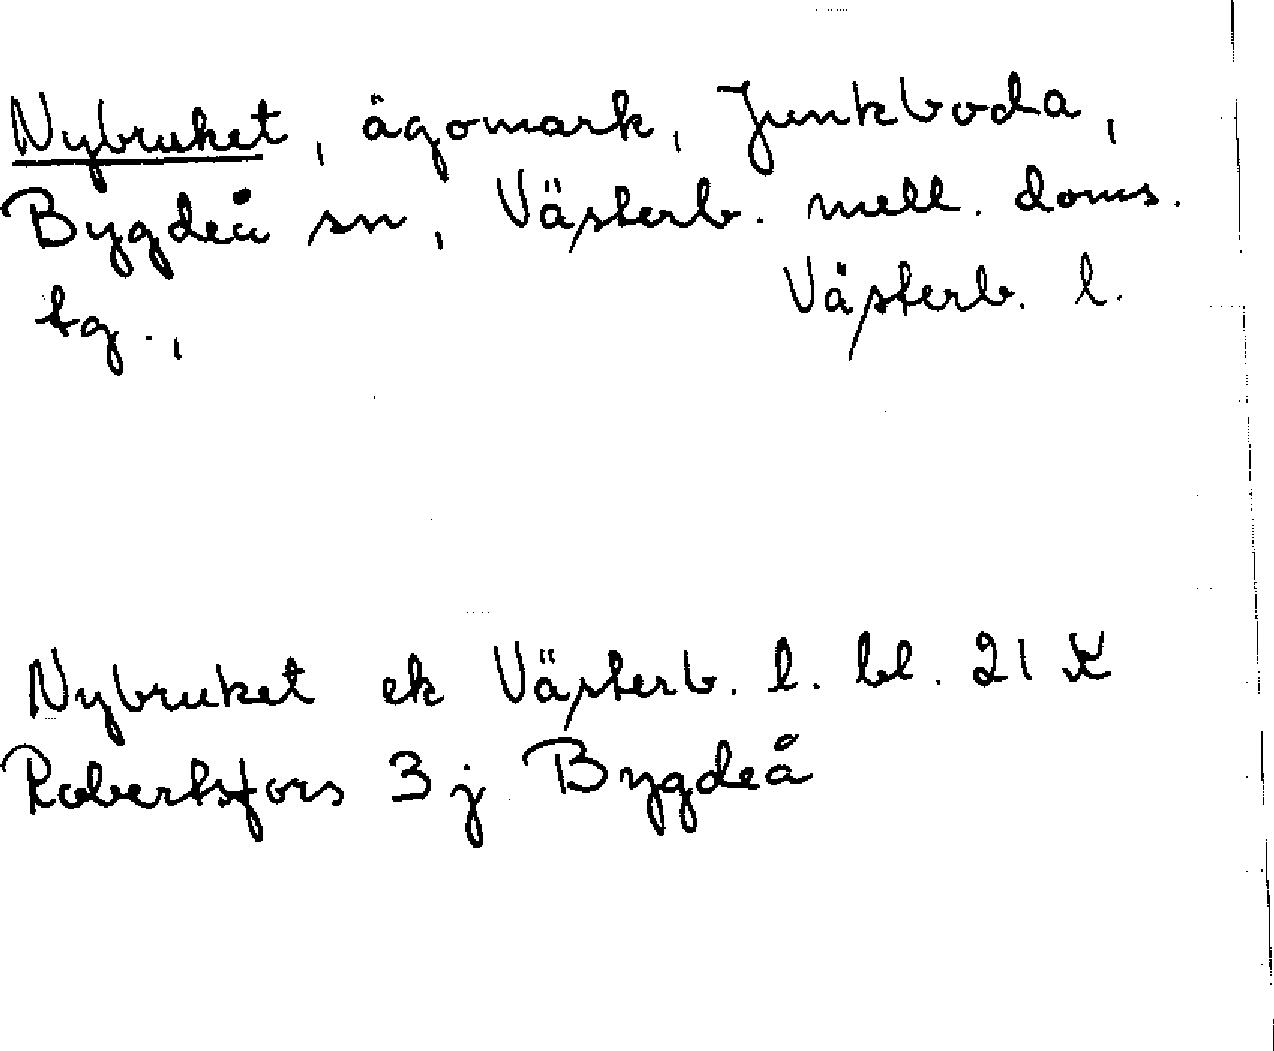 Nybruket, ägomark, Junkboda,
Bygdeå sn, Västerb. mell. doms.
tg., Västerb. l.
Nybruket ek Västerb. l. bl. 21 K
Robertsfors 3 j Bygdeå